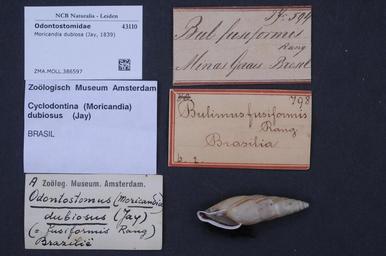 NCB Naturalis - Leiden
Odontostomidae 43110
Moricandia dubiosa (Jay, 1839)
ZMA.MOLL.386597
Zoölogisch Museum Amsterdam
Cyclodontina (Moricandia)
dubiosus (Jay)
BRASIL
A Zoölog. Museum. Amsterdam.
Odontostomus (Moricandia)
dubiosus (Jay)
(= fusiformis Rang)
Brazilië
594
Bul fusiformis
Rang
Minas Gaes Bresil
798
Bulimus fusiformis
Rang
Brasilia